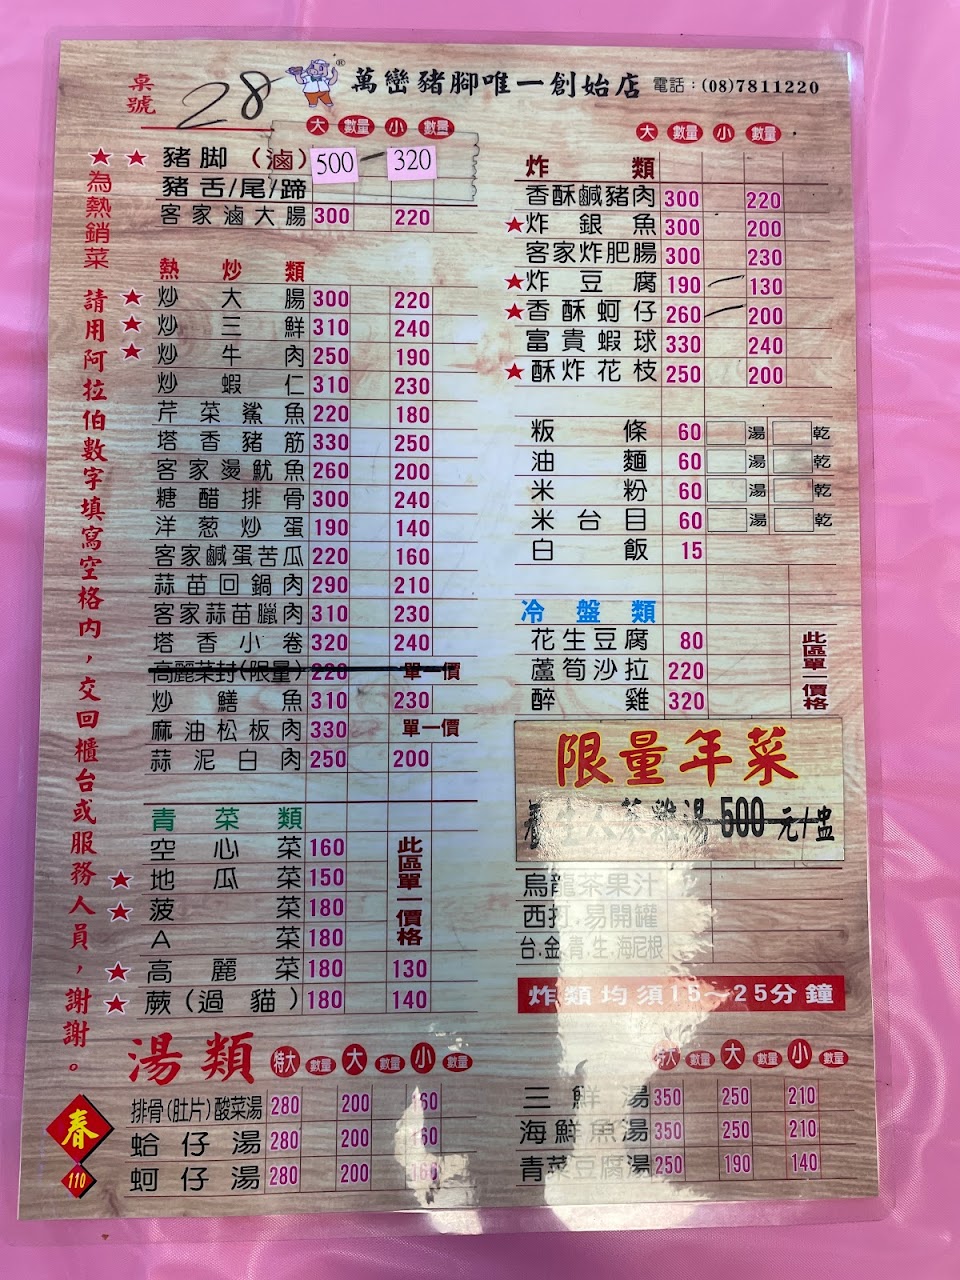 桌號 28
® 萬巒豬腳唯一創始店 電話：(08)7811220
大 數量 小 數量
★★為熱銷菜 請用阿拉伯數字填寫空格內，交回櫃台或服務人員，謝謝。
豬脚（滷） 500 320
豬舌/尾/蹄
客家滷大腸 300 220
熱炒類
★炒大腸 300 220
★炒三鮮 310 240
★炒牛肉 250 190
炒蝦仁 310 230
芹菜鯊魚 220 180
塔香豬筋 330 250
客家燙魷魚 260 200
糖醋排骨 300 240
洋葱炒蛋 190 140
客家鹹蛋苦瓜 220 160
蒜苗回鍋肉 290 210
客家蒜苗臘肉 310 230
塔香小卷 320 240
高麗菜封(限量) 220 單一價
炒鱔魚 310 230
麻油松板肉 330 單一價
蒜泥白肉 250 200
青菜類
空心菜 160
★地瓜菜 150
★菠菜 180
A菜 180
此區單一價格
★高麗菜 180 130
★蕨(過貓) 180 140
大 數量 小 數量
炸類
香酥鹹豬肉 300 220
★炸銀魚 300 200
客家炸肥腸 300 230
★炸豆腐 190 130
★香酥蚵仔 260 200
富貴蝦球 330 240
★酥炸花枝 250 200
粄條 60 湯 乾
油麵 60 湯 乾
米粉 60 湯 乾
米台目 60 湯 乾
白飯 15
冷盤類
花生豆腐 80
蘆筍沙拉 220
醉雞 320
此區單一價格
限量年菜
養生人蔘雞湯 500 元/盅
烏龍茶果汁
西打.易開罐
台.金.青.生.海尼根
炸類均須15～25分鐘
湯類 特大 數量 大 數量 小 數量
排骨(肚片)酸菜湯 280 200 160
蛤仔湯 280 200 160
蚵仔湯 280 200 160
特大 數量 大 數量 小 數量
三鮮湯 350 250 210
海鮮魚湯 350 250 210
青菜豆腐湯 250 190 140
春
110